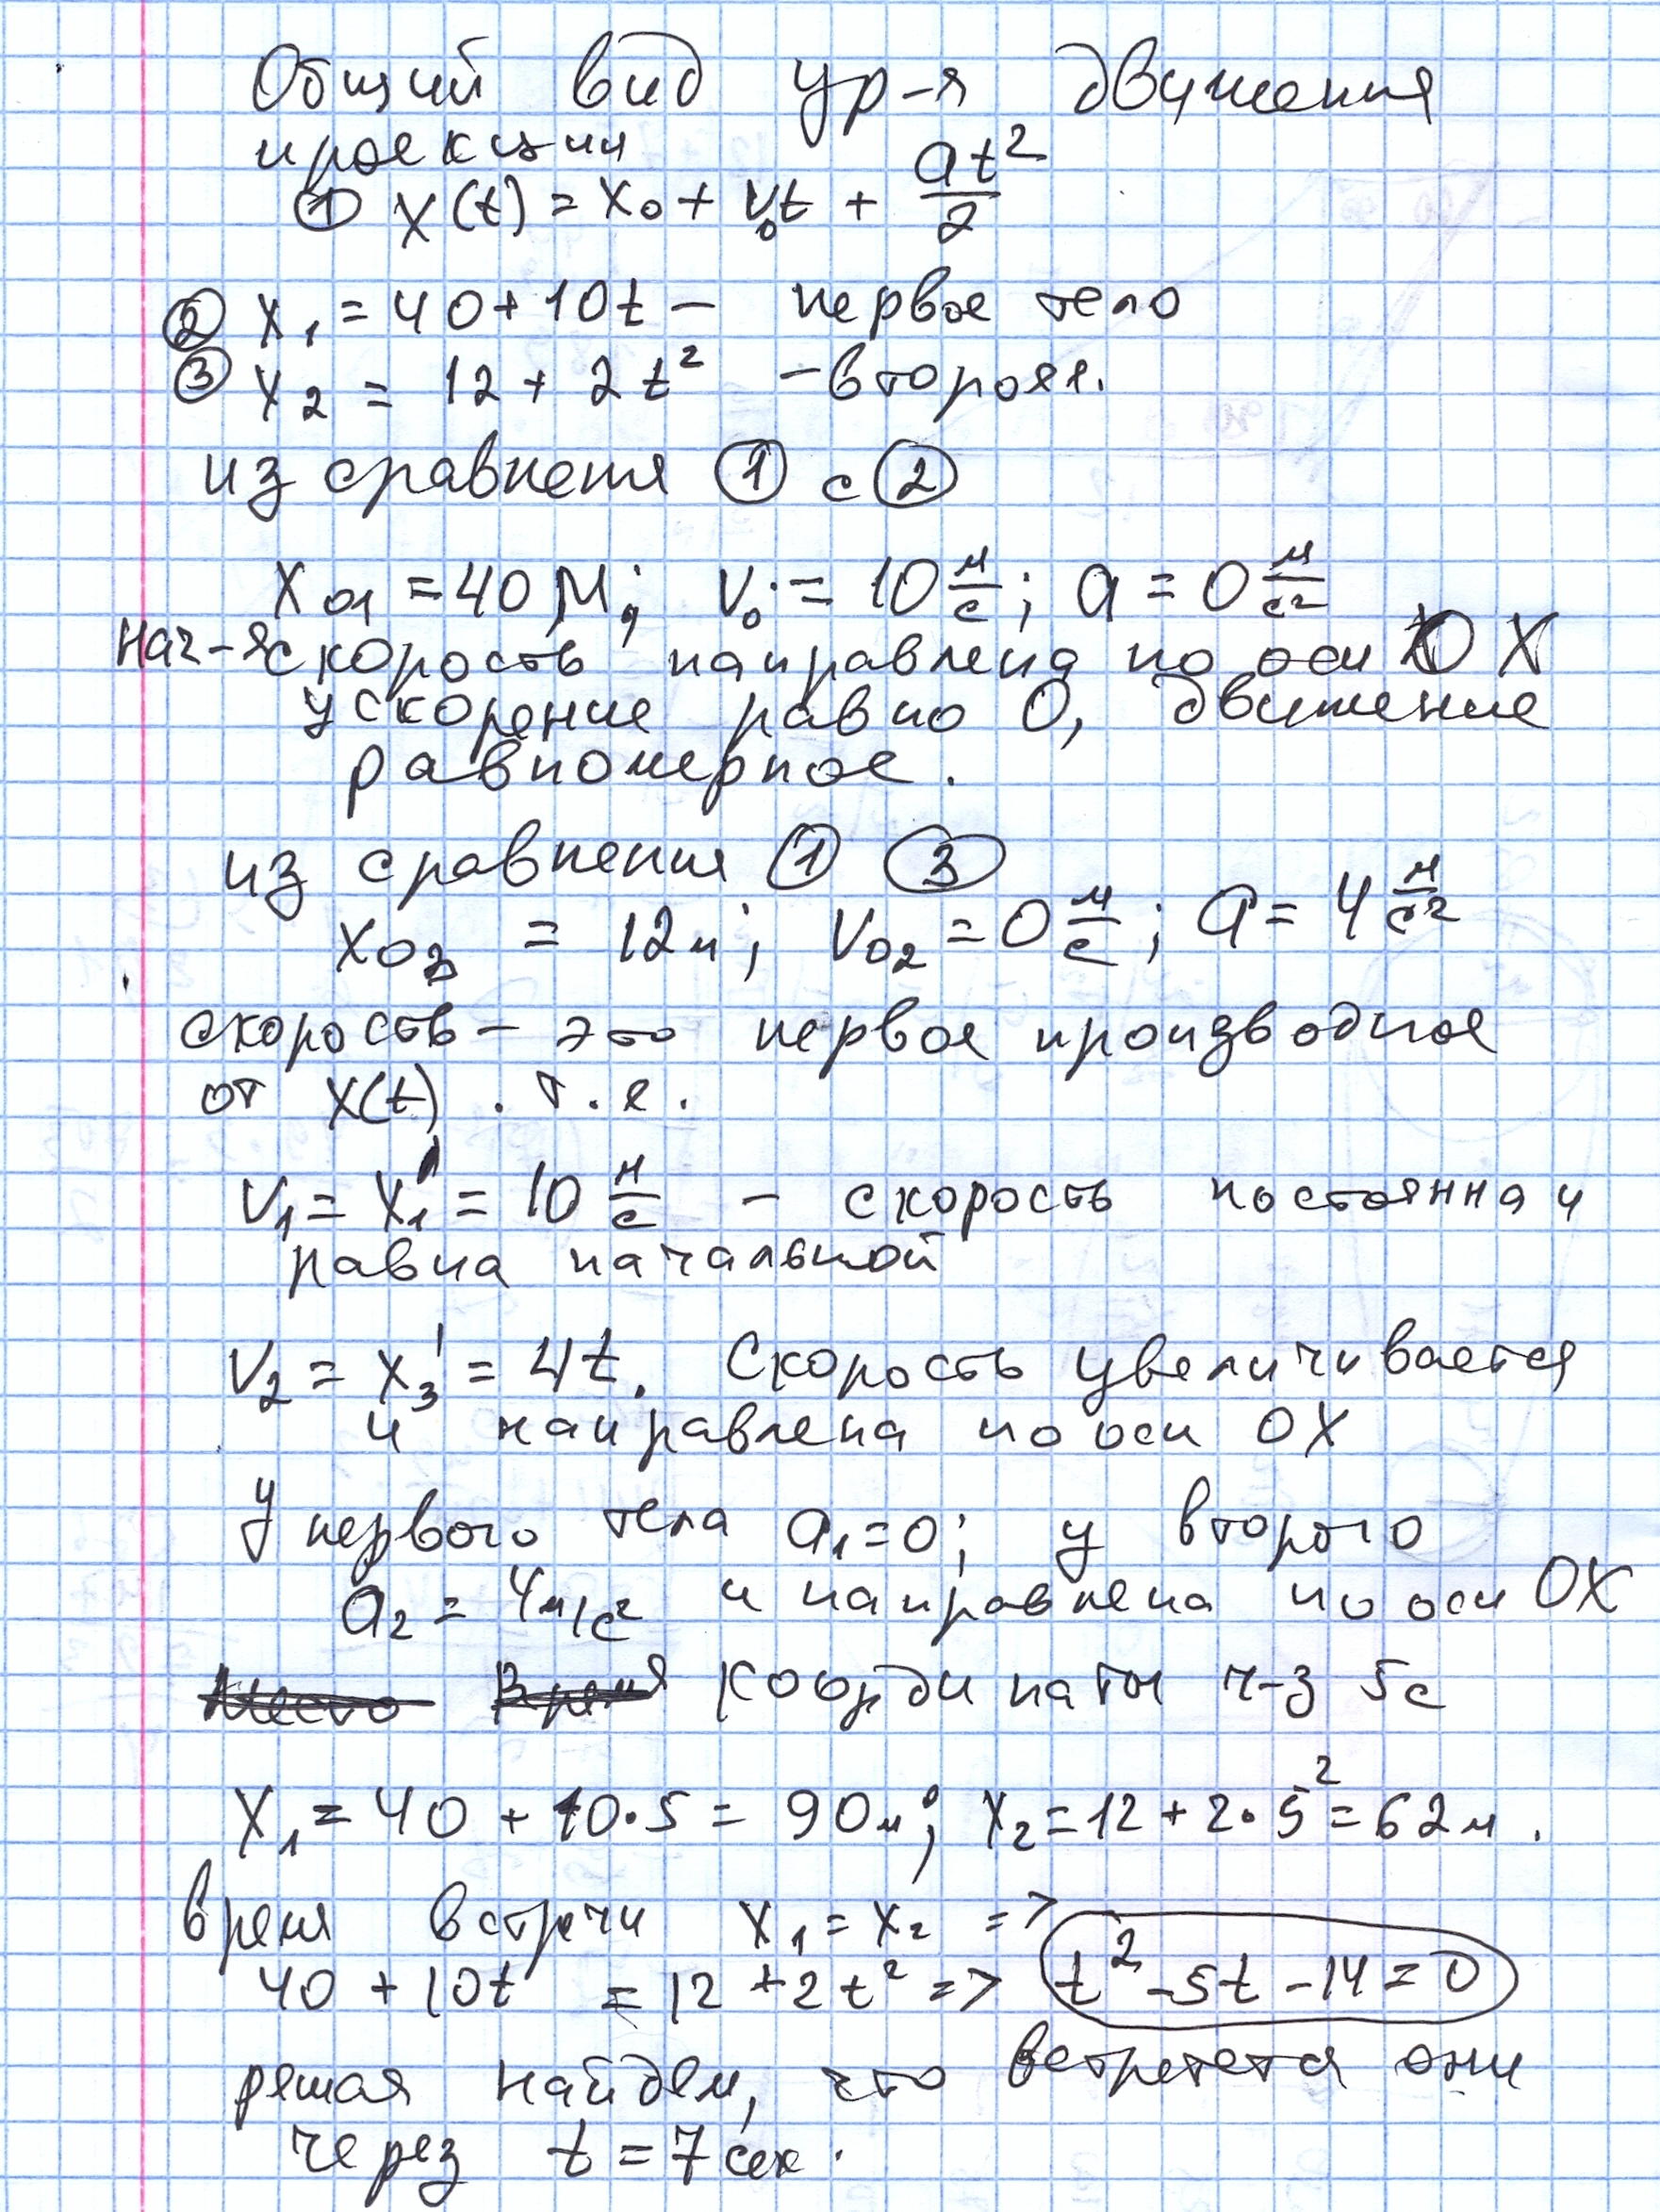 Общий вид ур-я движения
проекции
① X(t) = x₀ + v₀t + at²/2
② x₁ = 40 + 10t – первое тело
③ x₂ = 12 + 2t² – второяя.
из сравнения ① с ②
x₀₁ = 40 м; v₀ = 10 м/с; a = 0 м/с²
нач-я скорость направлена по оси OX
ускорение равно 0, движение
равномерное.
из сравнения ① ③
x₀₂ = 12 м; v₀₂ = 0 м/с; a = 4 м/с²
скорость – это первое производное
от x(t). т.е.
v₁ = x₁' = 10 м/с – скорость постоянна и
равна начальной
v₂ = x₃' = 4t. Скорость увеличивается
и направлена по оси OX
У первого тела a₁=0; у второго
a₂ = 4м/с² и направлена по оси OX
Место Время координаты ч-з 5с
X₁ = 40 + 10·5 = 90м; x₂ = 12 + 2·5² = 62м.
время встречи x₁ = x₂ =>
40 + 10t = 12 + 2t² => t² - 5t - 14 = 0
решая найдем, что встрететя они
через t = 7 сек.